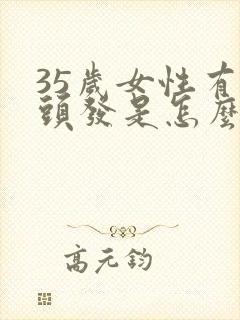 35歲女性有
頭發是怎麼
高元鈞